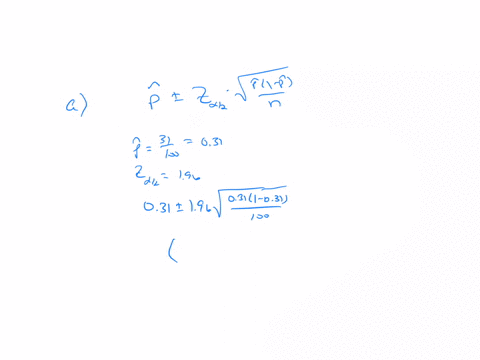 a) p̂ ± Z_{α/2} · √(p̂(1-p̂)/n)
p̂ = 31/100 = 0.31
Z_{α/2} = 1.96
0.31 ± 1.96 √(0.31(1-0.31)/100)
(